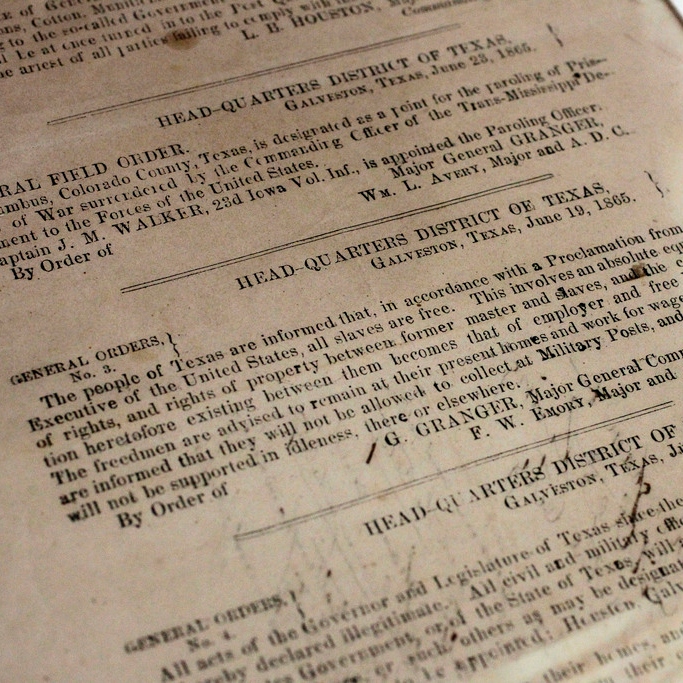 so-called Govern
to the so-called Government
Le at once turned in to the Post
the arrest of all parties failing to comply with
L. B. HOUSTON, Major
HEAD-QUARTERS DISTRICT OF TEXAS,
GALVESTON, TEXAS, June 23, 1865. }
RAL FIELD ORDER.
umbus, Colorado County, Texas, is designated as a point for the paroling of Pris-
of War surrendered by the Commanding Officer of the Trans-Mississippi De-
ment to the Forces of the United States.
aptain J. M. WALKER, 23d Iowa Vol. Inf., is appointed the Paroling Officer.
By Order of
Major General GRANGER,
WM. L. AVERY, Major and A. D. C.
HEAD-QUARTERS DISTRICT OF TEXAS,
GALVESTON, TEXAS, June 19, 1865. }
GENERAL ORDERS, }
No. 3.
The people of Texas are informed that, in accordance with a Proclamation from
Executive of the United States, all slaves are free. This involves an absolute equ
of rights, and rights of property between former master and slaves, and the c
tion heretofore existing between them becomes that of employer and free
The freedmen are advised to remain at their present homes and work for wage
are informed that they will not be allowed to collect at Military Posts, and
will not be supported in idleness, there or elsewhere.
By Order of
G. GRANGER, Major General Comm
F. W. EMORY, Major and
HEAD-QUARTERS DISTRICT OF
GALVESTON, TEXAS, J
GENERAL ORDERS, }
No. 4.
All acts of the Governor and Legislature of Texas since the
hereby declared illegitimate. All civil and military offic
tes Government, or of the State of Texas, will
or such others as may be designat
be appointed: Houston, Galv
their homes, and